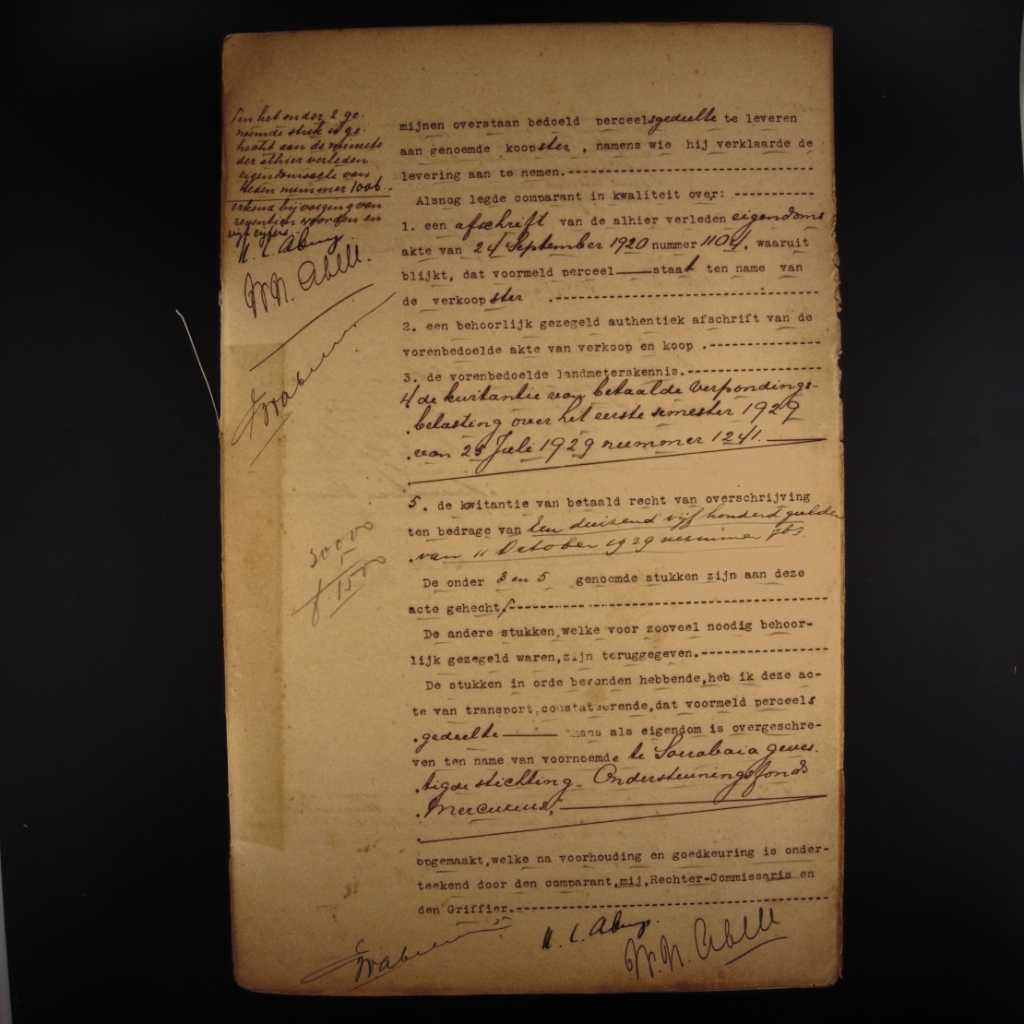 het onder 2 ge-
noemde stuk is ge-
hecht aan de minute
der alhier verleden
eigendomsacte van
heden nummer 1006.
erkend bij voeging van
zeventien woorden en
vier cijfers.
W. N. Abell.
mijnen overstaan bedoeld perceelsgedeelte te leveren
aan genoemde koopster, namens wie hij verklaarde de
levering aan te nemen.
Alsnog legde comparant in kwaliteit over:
1. een afschrift van de alhier verleden eigendoms
akte van 24 September 1920 nummer 1104, waaruit
blijkt, dat voormeld perceel staat ten name van
de verkoopster.
2. een behoorlijk gezegeld authentiek afschrift van de
vorenbedoelde akte van verkoop en koop.
3. de vorenbedoelde landmeterskennis.
4 de kwitantie van betaalde verpondings-
belasting over het eerste semester 1929
van 25 Juli 1929 nummer 1241.
5. de kwitantie van betaald recht van overschrijving
ten bedrage van Een duizend vijf honderd gulden
van 11 October 1929 nummer
30000
5
f 1500
De onder 3 en 5 genoemde stukken zijn aan deze
acte gehecht.
De andere stukken, welke voor zooveel noodig behoor-
lijk gezegeld waren, zijn teruggegeven.
De stukken in orde bevonden hebbende, heb ik deze ac-
te van transport, constateerende, dat voormeld perceels
gedeelte thans als eigendom is overgeschre-
ven ten name van voornoemde te Soerabaia geves
tigde stichting Ondersteuningsfonds
Mercurius,
opgemaakt, welke na voorhouding en goedkeuring is onder-
teekend door den comparant, mij, Rechter-Commissaris en
den Griffier.
W. N. Abell